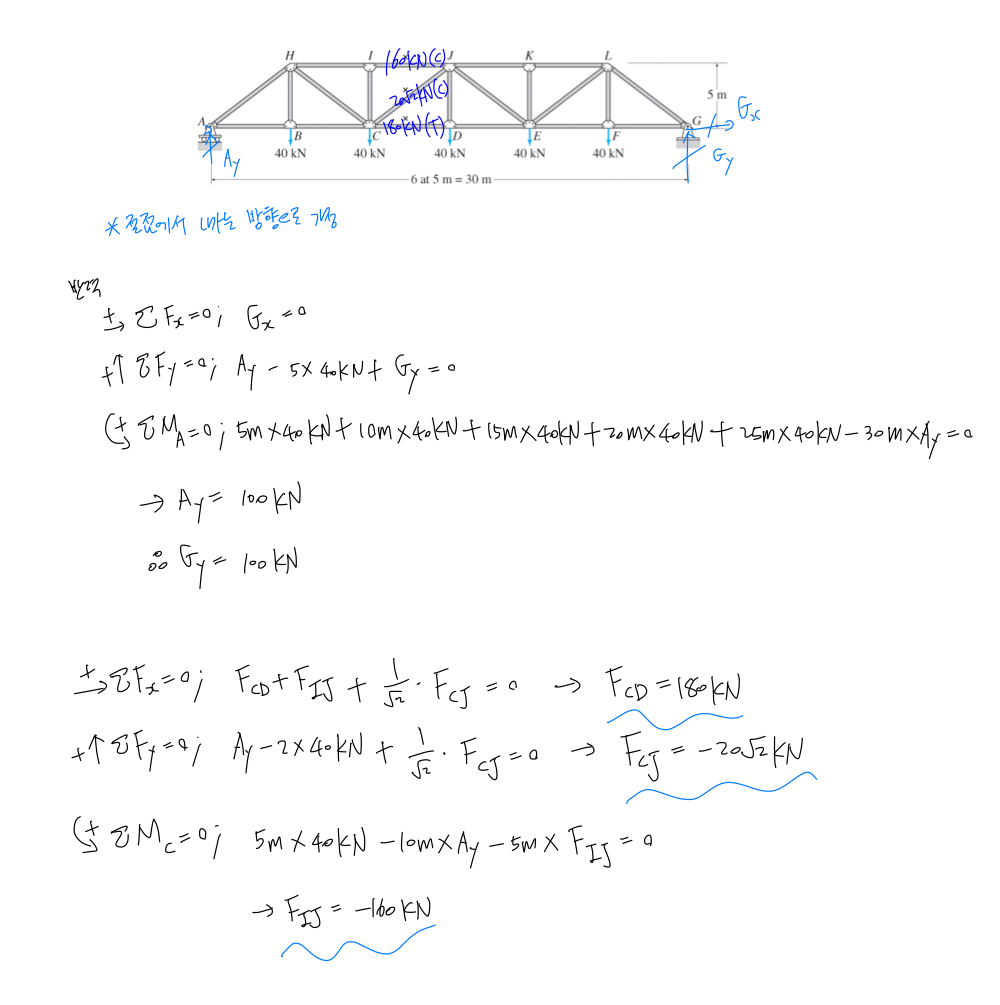 H I J K L
160kN(C)
20√2kN(C)
180kN(T)
5 m
A B C D E F G
Gx
Ay
Gy
40 kN 40 kN 40 kN 40 kN 40 kN
6 at 5 m = 30 m
* 절점에서 나가는 방향으로 가정
반력
+→ ΣFx=0; Gx=0
+↑ ΣFy=0; Ay - 5×40kN + Gy = 0
↺+ ΣM_A=0; 5m×40kN + 10m×40kN + 15m×40kN + 20m×40kN + 25m×40kN - 30m×Ay = 0
→ Ay = 100kN
∴ Gy = 100kN
+→ ΣFx=0; F_CD + F_IJ + 1/√2 · F_CJ = 0 → F_CD = 180kN
+↑ ΣFy=0; Ay - 2×40kN + 1/√2 · F_CJ = 0 → F_CJ = -20√2kN
↺+ ΣM_C=0; 5m×40kN - 10m×Ay - 5m×F_IJ = 0
→ F_IJ = -160kN